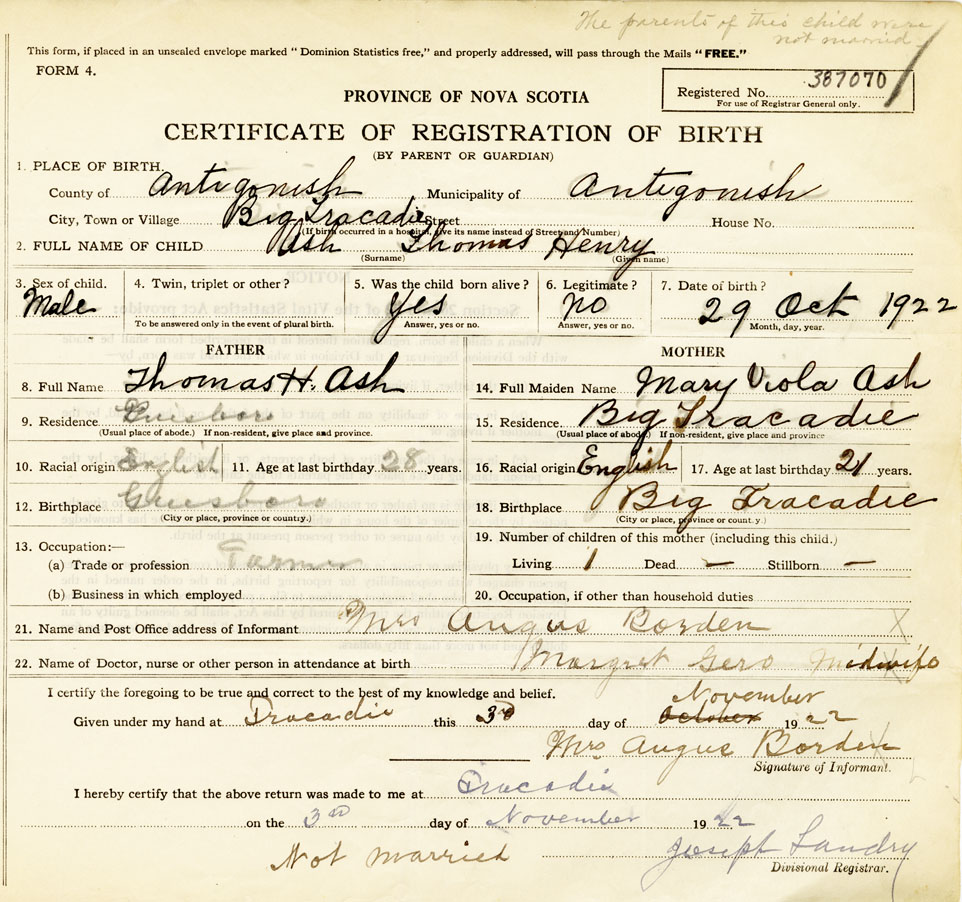 The parents of this child were
not married
This form, if placed in an unsealed envelope marked "Dominion Statistics free," and properly addressed, will pass through the Mails "FREE."
FORM 4.
Registered No. 387070
For use of Registrar General only.
PROVINCE OF NOVA SCOTIA
CERTIFICATE OF REGISTRATION OF BIRTH
(BY PARENT OR GUARDIAN)
1. PLACE OF BIRTH.
County of Antigonish Municipality of Antigonish
City, Town or Village Big Tracadie Street House No.
(If birth occurred in a hospital, give its name instead of Street and Number)
2. FULL NAME OF CHILD Ash Thomas Henry
(Surname) (Given name)
3. Sex of child. 4. Twin, triplet or other? 5. Was the child born alive? 6. Legitimate? 7. Date of birth?
Male Yes No 29 Oct 1922
To be answered only in the event of plural birth. Answer, yes or no. Answer, yes or no. Month, day, year.
FATHER MOTHER
8. Full Name Thomas H. Ash 14. Full Maiden Name Mary Viola Ash
9. Residence Guisboro 15. Residence Big Tracadie
(Usual place of abode.) If non-resident, give place and province. (Usual place of abode.) If non-resident, give place and province
10. Racial origin English 11. Age at last birthday 28 years. 16. Racial origin English 17. Age at last birthday 21 years.
12. Birthplace Guisboro 18. Birthplace Big Tracadie
(City or place, province or country.) (City or place, province or country.)
13. Occupation:— 19. Number of children of this mother (including this child.)
(a) Trade or profession Farmer Living 1 Dead — Stillborn —
(b) Business in which employed 20. Occupation, if other than household duties
21. Name and Post Office address of Informant Mrs Angus Borden X
22. Name of Doctor, nurse or other person in attendance at birth Margret Gero Midwife
I certify the foregoing to be true and correct to the best of my knowledge and belief.
November
Given under my hand at Tracadie this 3rd day of October 1922
Mrs Angus Borden
Signature of Informant.
I hereby certify that the above return was made to me at Tracadie
on the 3rd day of November 1922
Not married Joseph Landry
Divisional Registrar.